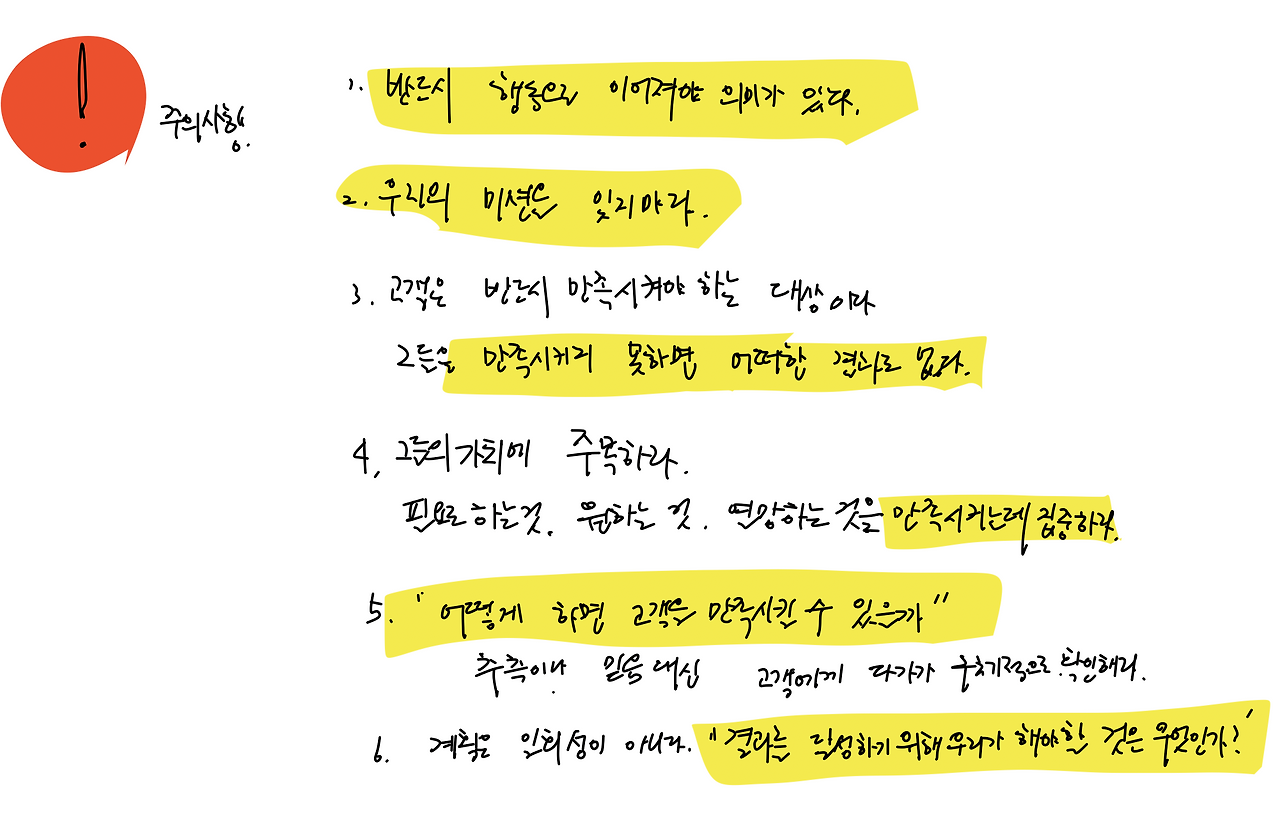 !
주의사항.
1. 반드시 행동으로 이어져야 의의가 있다.
2. 우리의 미션을 잊지마라.
3. 고객은 반드시 만족시켜야 하는 대상이다
그들을 만족시키지 못하면 어떠한 결과도 없다.
4. 그들의 가치에 주목하라.
필요로 하는것, 원하는 것, 열망하는 것을 만족시키는데 집중하라.
5. "어떻게 하면 고객을 만족시킬 수 있을까"
추측이나 믿음 대신 고객에게 다가가 구체적으로 확인해라.
6. 계획은 일회성이 아니다. "결과를 달성하기 위해 우리가 해야할 것은 무엇인가?"